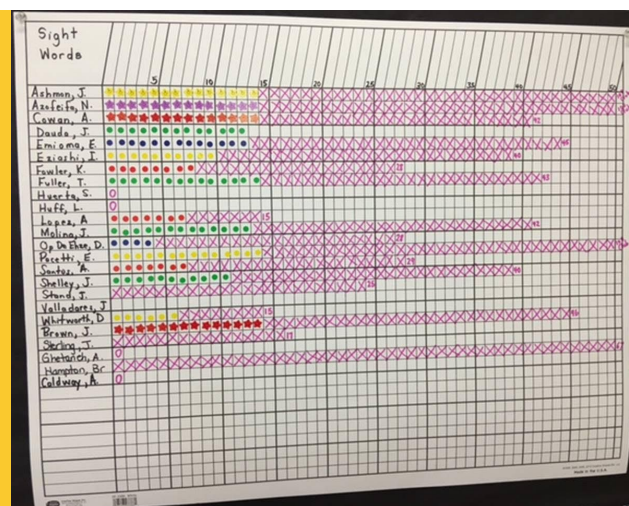 Sight
Words
5 10 15 20 25 30 35 40 45 50
Ashman, J.
Azofeifa, N.
Cowan, A. 42
Dauda, J.
Emioma, E. 45
Eziashi, I. 40
Fowler, K. 28
Fuller, T. 43
Huerta, S. 0
Huff, L. 0
Lopez, A 15
Molina, J. 42
Op De Ehze, D. 28
Pocetti, E.
Santoz, A. 29
Shelley, J. 40
Stand, J. 25
Valladares, J
Whitworth, D 15
Brown, J. 46
Sterling, J. 17
Ghetanich, A. 0
Hampton, Br
Coldway, A. 0
Made in the U.S.A.